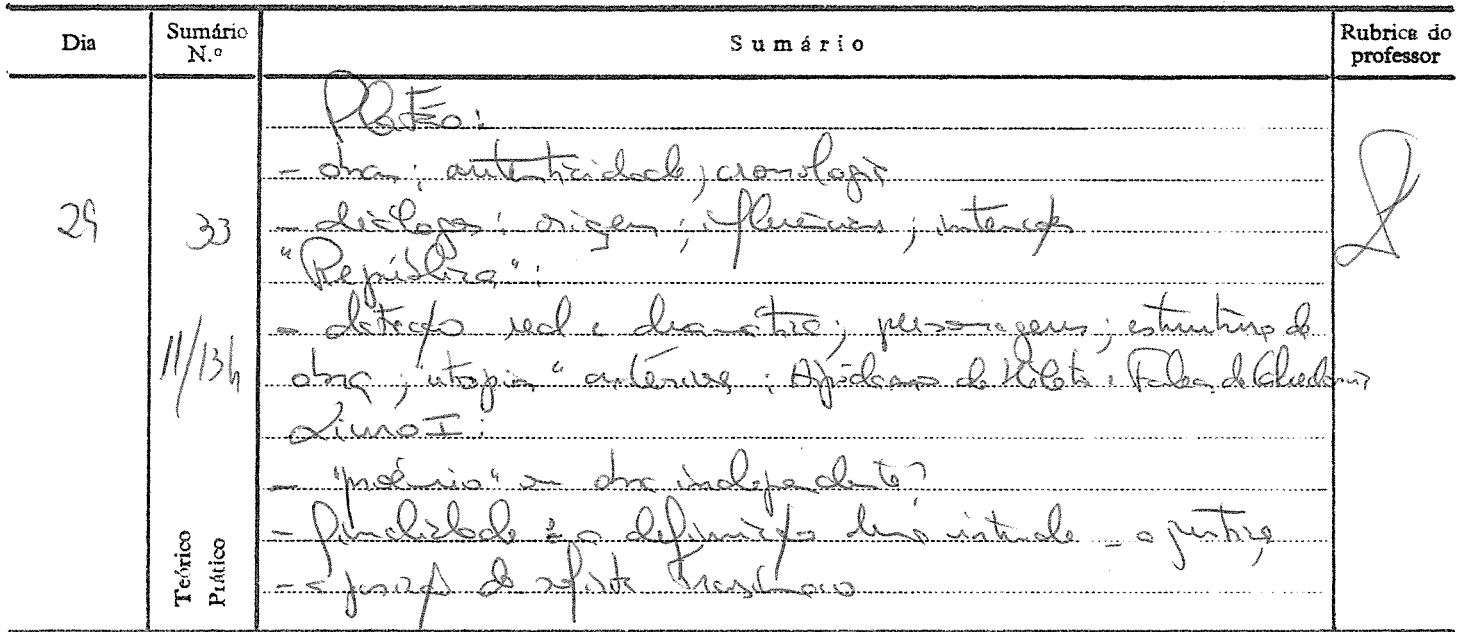 Dia
Sumário N.º
Sumário
Rubrica do professor
29
33
11/13h
Teórico
Prático
Platão:
- obras; autenticidade; cronologia
- diálogos: origem; influências; intenção
"República":
- datação real e dramática; personagens; estrutura da
obra; "utopias" anteriores: Hipódamo de Mileto e Faleas de Calcedónia
Livro I:
- "proémio" ou obra independente?
- finalidade: a definição duma virtude - a justiça
- a posição do sofista Trasímaco